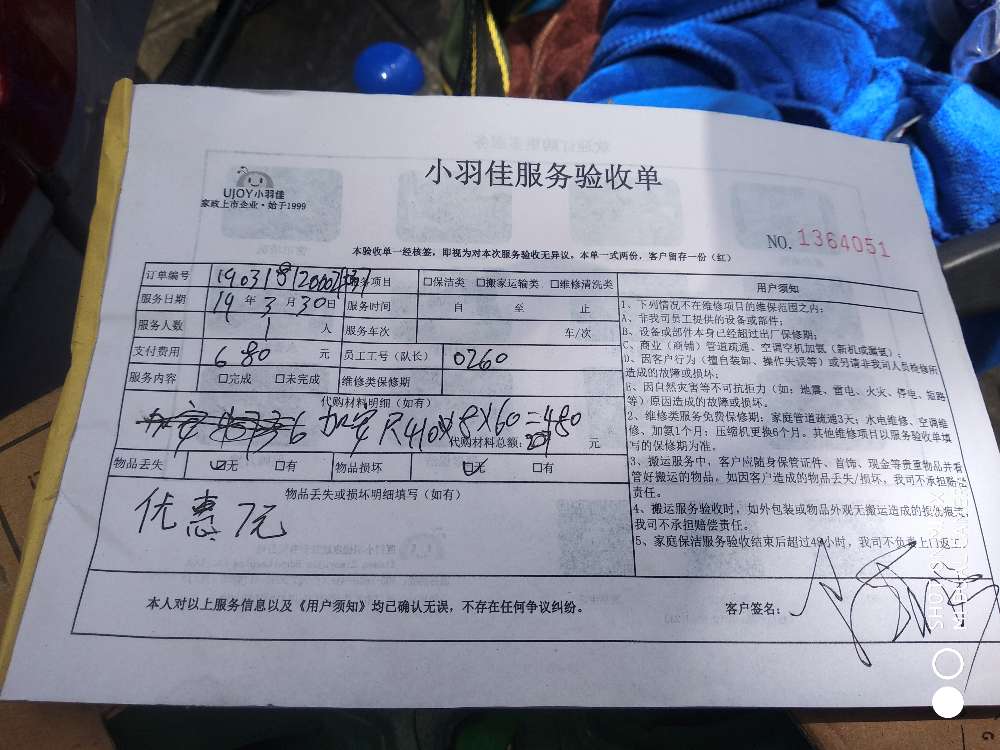 小羽佳服务验收单
UJOY小羽佳
家政上市企业·始于1999
NO. 1364051
本验收单一经核签，即视为对本次服务验收无异议。本单一式两份，客户留存一份（红）
订单编号 服务项目 □保洁类 □搬家运输类 □维修清洗类
服务日期 19 年 3 月 30 日 服务时间 自 至 止
服务人数 1 人 服务车次 车/次
支付费用 680 元 员工工号（队长） 0260
服务内容 □完成 □未完成 维修类保修期
代购材料明细（如有）
R410 8×60=480
代购材料总额： 元
物品丢失 ☑无 □有 物品损坏 ☑无 □有
物品丢失或损坏明细填写（如有）
优惠7元
用户须知
1、下列情况不在维修项目的维保范围之内：
A、非我司员工提供的设备或部件；
B、设备或部件本身已经超过出厂保修期；
C、商业（商铺）管道疏通、空调空机加氨（新机或漏氨）；
D、因客户行为（擅自装卸、操作失误等）或另请非我司人员检修所
造成的故障或损坏；
E、因自然灾害等不可抗拒力（如：地震、雷电、火灾、停电、短路
等）原因造成的故障或损坏。
2、维修类服务免费保修期：家庭管道疏通3天；水电维修、空调维
修、加氨1个月；压缩机更换6个月。其他维修项目以服务验收单填
写的保修期为准。
3、搬运服务中，客户应随身保管证件、首饰、现金等贵重物品并看
管好搬运的物品，如因客户造成的物品丢失/损坏，我司不承担赔偿
责任。
4、搬运服务验收时，如外包装或物品外观无搬运造成的损伤痕迹，
我司不承担赔偿责任。
5、家庭保洁服务验收结束后超过48小时，我司不负责上门返工。
本人对以上服务信息以及《用户须知》均已确认无误，不存在任何争议纠纷。
客户签名：